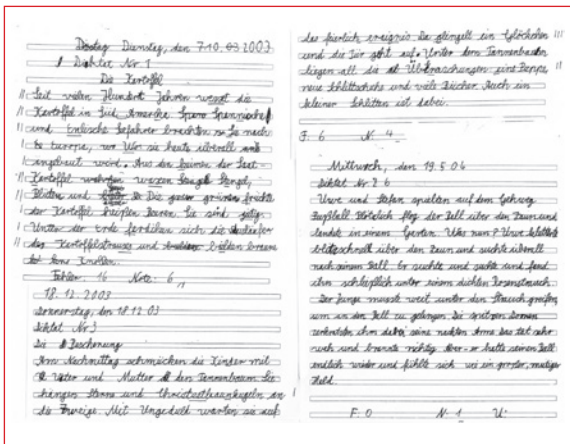 Dienstag, den 7.10.03 2003
Diktat Nr. 1
Die Kartoffel
Seit vielen Hundert Jahren die
Kartoffel in Süd, Amerika
und Enlische Sefahrer brachten sie nach
Europa, wo sie heute überall
angebaut wird. Aus den der Saat-
Kartoffel
Blüten und Die grünen früchte
der Kartoffel heißen Beeren Sie sind
Unter der Erde sich die
des und bilden braune
Knollen.
Fehler: 16 Note: 6
18.12.2003
Donnerstag, den 18.12.03
Diktat Nr 3
Die Bescherung
Am Nachmittag schmücken die Kinder mit
Vater und Mutter den Tannenbaum Sie
hängen Sterne und an
die Zweige. Mit Ungeduld warten sie auf
das feierlich ereignis. Da glingelt ein Glöckchen
und die Tür geht auf. Unter dem Tannenbaum
liegen all die Überaschungen: eine Puppe,
neue Schlittschuhe und viele Bücher. Auch ein
kleiner Schlitten ist dabei.
F. 6 N. 4
Mittwoch, den 19.5.04
Diktat Nr. 6
Uwe und Stefan spielen auf dem Gehweg
Fußball Plötzlich flog der Ball über den Zaun und
landete in einem Garten. Was nun? Uwe kletterte
blitzschnell über den Zaun und suchte überall
nach seinem Ball. Er suchte und suchte und fand
ihn schließlich unter einem dichten Rosenstrauch.
Der Junge musste weit unter den Strauch greifen
um an den Ball zu gelangen. Die spitzen Dornen
zerkratzten ihm dabei seine nackten Arme. Das tat sehr
weh und brannte richtig. Aber er hatte seinen Ball
endlich wieder und fühlte sich wie ein großer, mutiger
Held.
F: 0 N: 1 U: